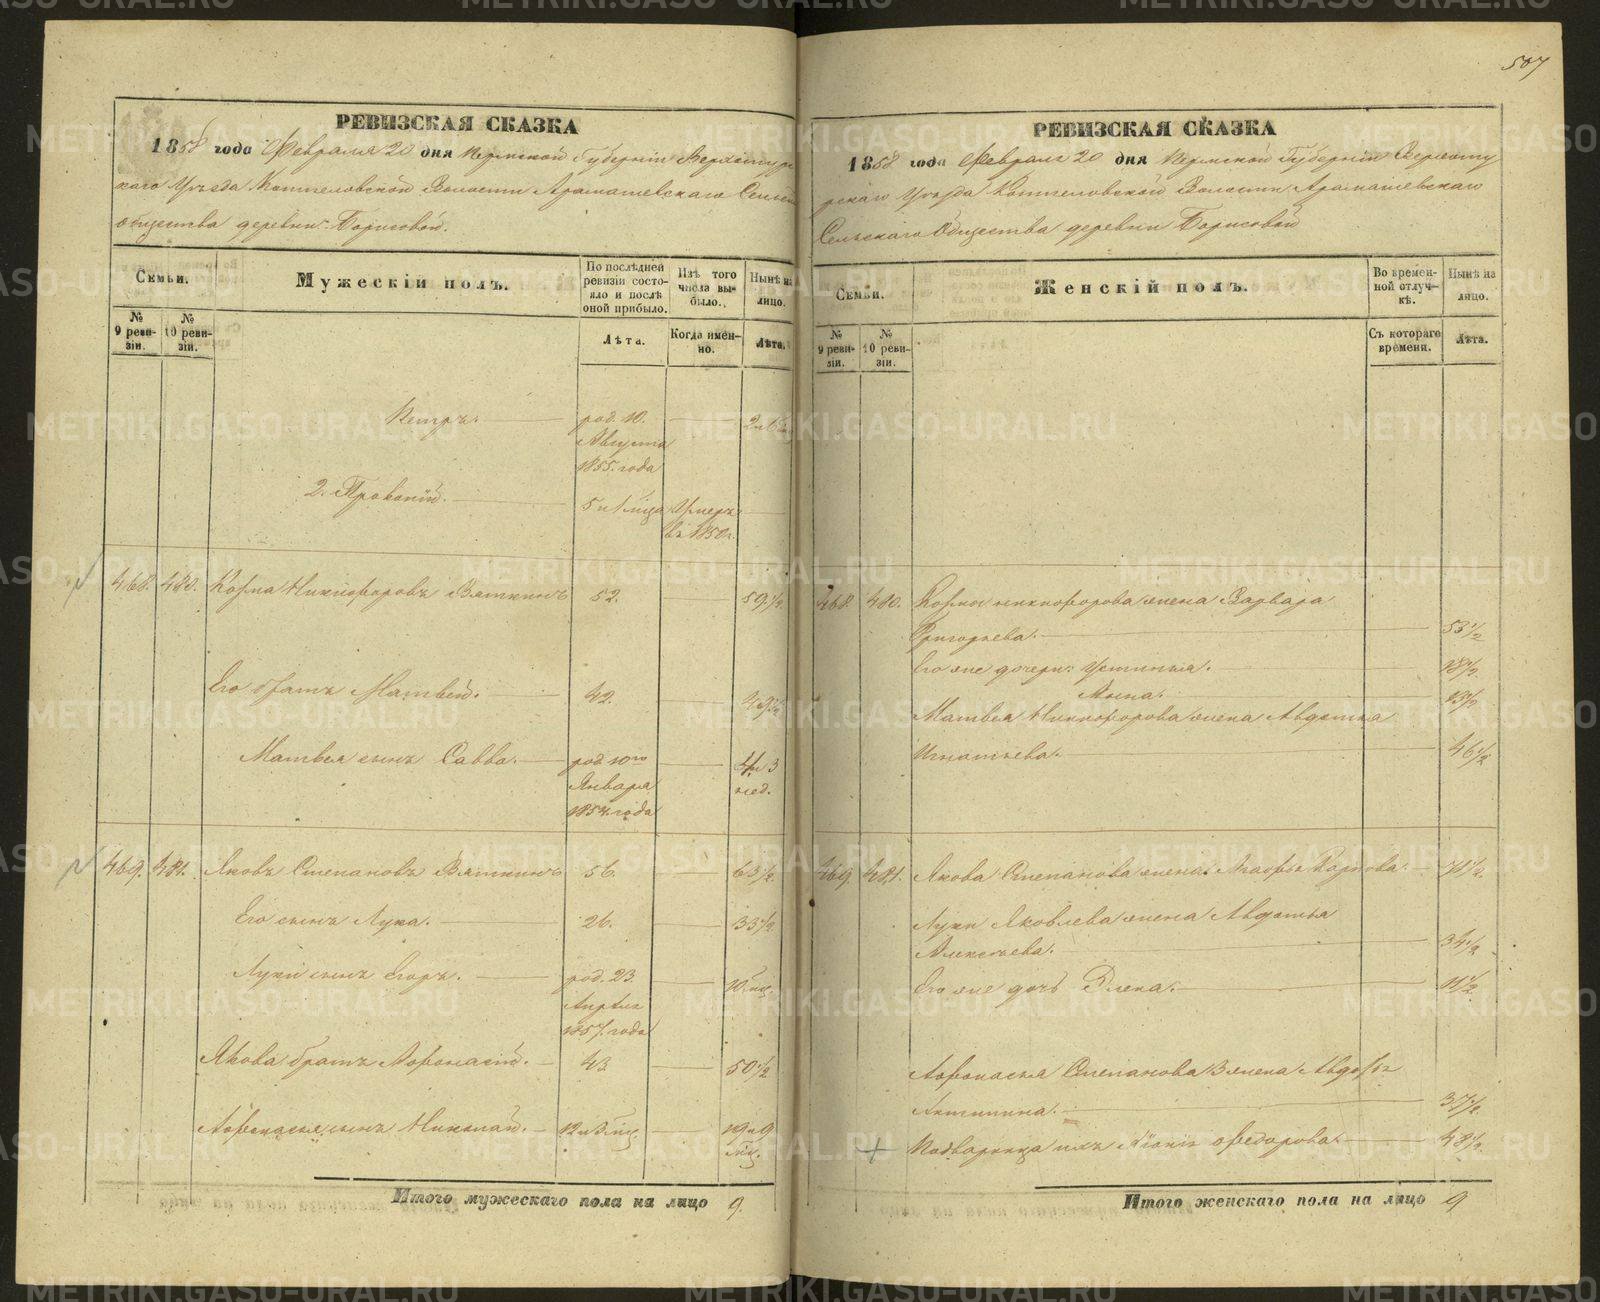 507
РЕВИЗСКАЯ СКАЗКА
1858 года Февраля 20 дня Пермской Губернiи Верхотур
скаго Уѣзда Коптеловской Волости Арамашевскаго Сельск
общества деревни Борисовой.
Семьи.
Мужескiй полъ.
По послѣдней ревизiи состояло и послѣ оной прибыло.
Изъ того числа выбыло.
Нынѣ на лицо.
№ 9 ревизiи.
№ 10 ревизiи.
Лѣта.
Когда именно.
Лѣта.
Петръ. род. 10. Августа 1855. года
2. Прокопiй. 5 и 1 мца Умеръ въ 1850 г.
468. 480. Козма Никифоровъ Вяткинъ 52. 59 1/2
Его братъ Матвей. 42. 49 1/2
Матвея сынъ Савва. род 10го Января 1854. года 4 и 3 нед.
469. 481. Яковъ Степановъ Вяткинъ 56. 63 1/2
Его сынъ Лука. 26. 33 1/2
Луки сынъ Егоръ. род. 23 Апреля 1857. года 10 мц.
Якова братъ Афонасiй. 43 50 1/2
Афонасья сынъ Николай. 12 и 3 мц. 19 и 9 мц.
Итого мужескаго пола на лицо 9.
РЕВИЗСКАЯ СКАЗКА
1858 года Февраля 20 дня Пермской Губернiи Верхоту
рскаго Уѣзда Коптеловской Волости Арамашевскаго
Сельскаго Общества деревни Борисовой
Семьи.
Женскiй полъ.
Во временной отлучкѣ.
Нынѣ на лицо.
№ 9 ревизiи.
№ 10 ревизiи.
Съ котораго времени.
Лѣта.
468. 480. Козмы Никифорова жена Варвара
Григорьева. 53 1/2
Его же дочери: Устинья. 18 1/2
Анна. 13 1/2
Матвея Никифорова жена Авдотья
Игнатьева. 46 1/2
469. 481. Якова Степанова жена Марфа Карпова. 71 1/2
Луки Яковлева жена Авдотья
Алексѣева. 34 1/2
Его же дочь Елена. 11 1/2
Афонасья Степанова 3 жена Авдотья
Антипина. 37 1/2
Федорова. 48 1/2
Итого женскаго пола на лицо 9
METRIKI.GASO-URAL.RU